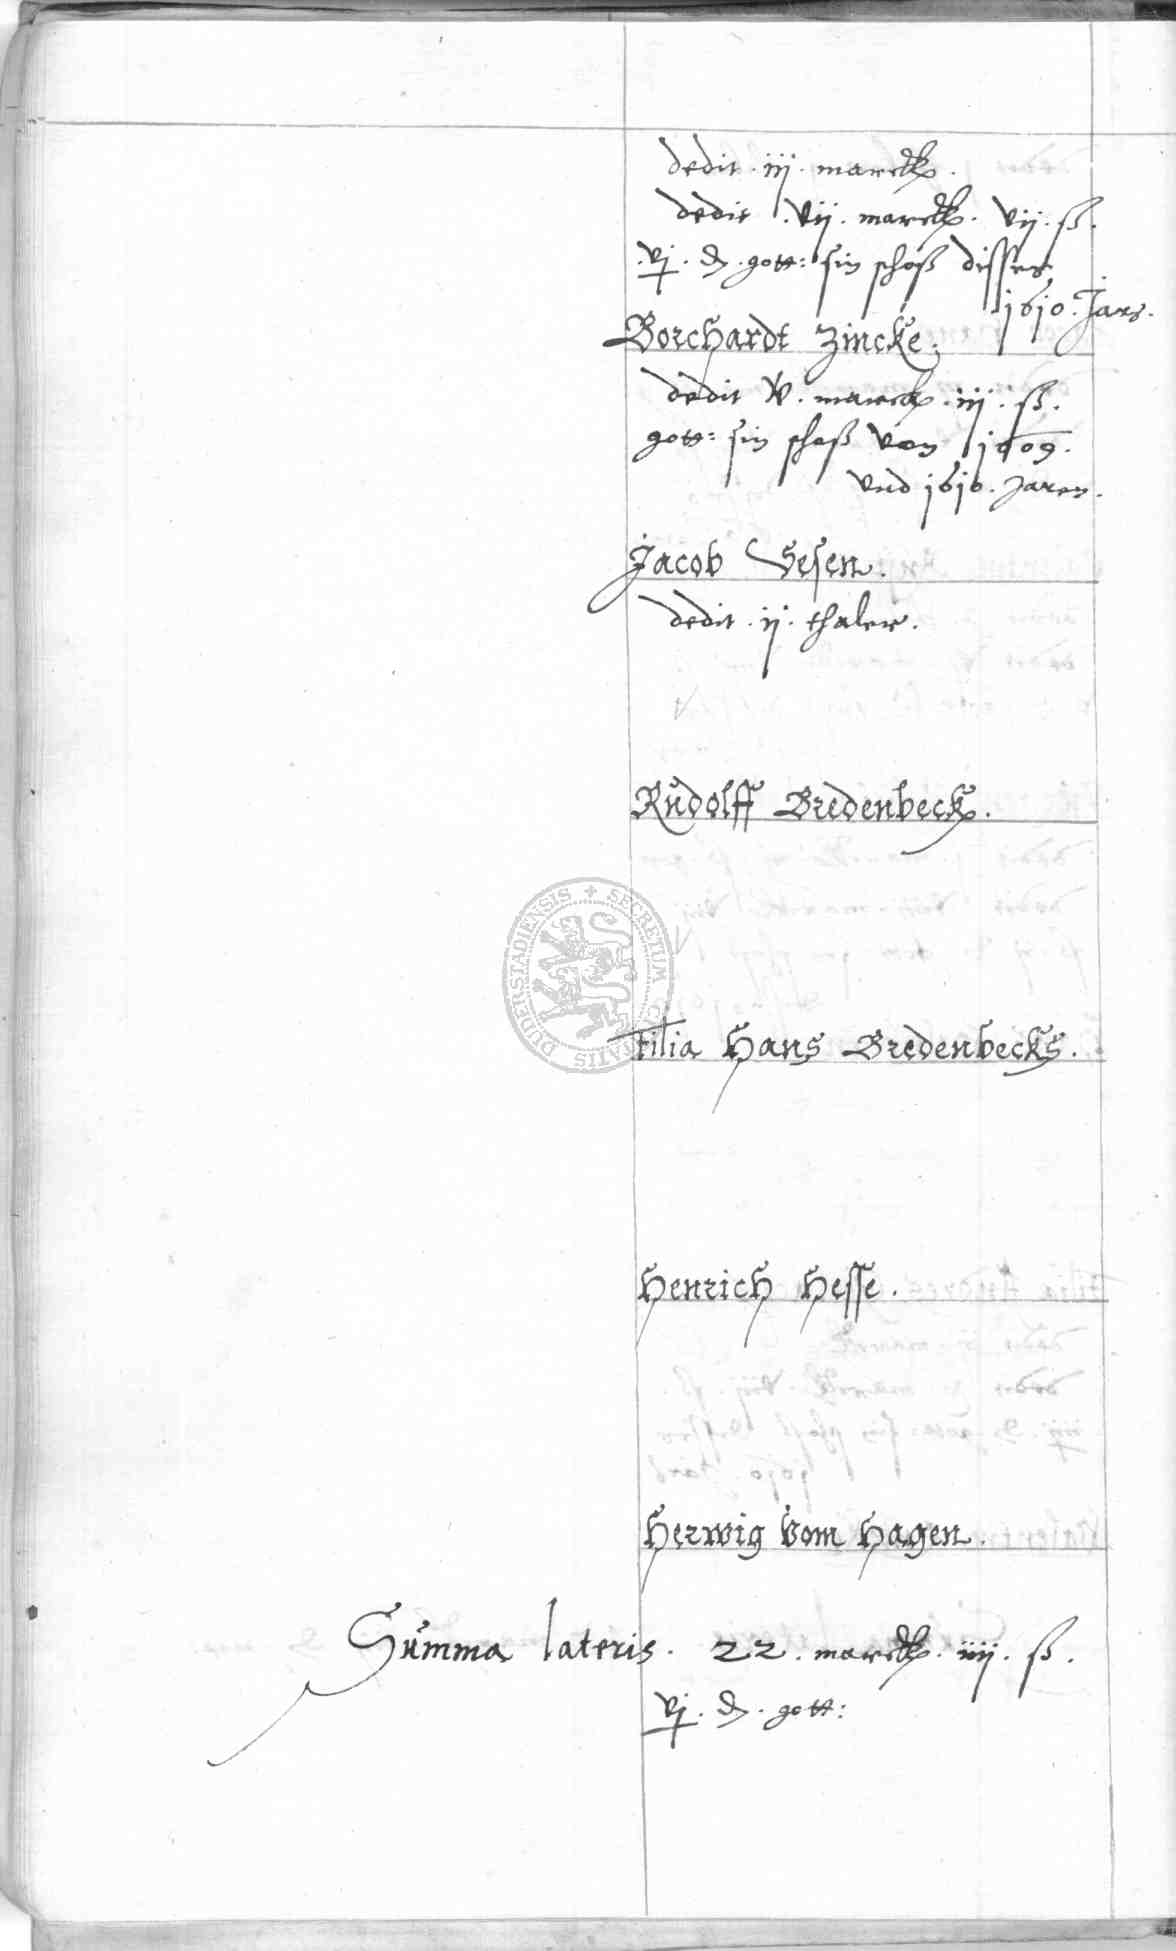 dedit · iij · marck.
dedit · vij · marck · vij · ß.
vj · ₰ · gott: sin schoß disses
1610 · Jars.
Borchardt Zincke.
dedit v · marck · iij · ß.
gott: sin schoß von 1609.
vnd 1610 · Jaren.
Jacob Vesen.
dedit · ij · thaler.
Rudolff Bredenbeck.
DUDERSTADIENSIS + SECRETUM CIVITATIS
Filia Hans Bredenbecks.
Henrich Hesse.
Herwig vom Hagen.
Summa lateris · 22 · marck · iiij · ß.
vj · ₰ · gott: